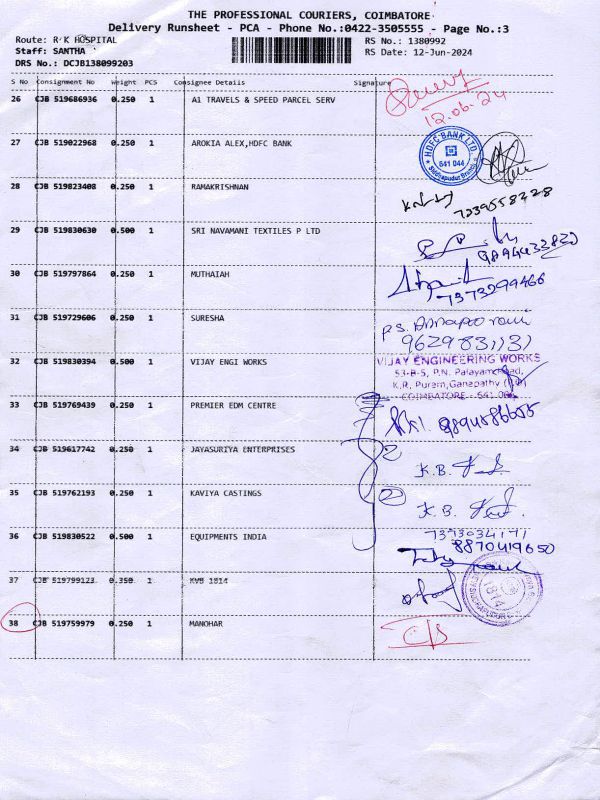 THE PROFESSIONAL COURIERS, COIMBATORE
Delivery Runsheet - PCA - Phone No.:0422-3505555 - Page No.:3
Route: R K HOSPITAL
RS No.: 1380992
Staff: SANTHA
RS Date: 12-Jun-2024
DRS No.: DCJB138099203
S No Consignment No Weight PCS Consignee Details Signature
26 CJB 519686936 0.250 1 A1 TRAVELS & SPEED PARCEL SERV
12.06.24
27 CJB 519022968 0.250 1 AROKIA ALEX,HDFC BANK
HDFC BANK LTD.
641 044
Siddhapudur Branch
28 CJB 519823408 0.250 1 RAMAKRISHNAN
7339558228
29 CJB 519830630 0.500 1 SRI NAVAMANI TEXTILES P LTD
30 CJB 519797864 0.250 1 MUTHAIAH
7373299466
31 CJB 519729606 0.250 1 SURESHA
P.S.
9629831131
32 CJB 519830394 0.500 1 VIJAY ENGI WORKS
VIJAY ENGINEERING WORKS
53-B-5, P.N. Palayam Road,
K.R. Puram, Ganapathy
COIMBATORE - 641 006
33 CJB 519769439 0.250 1 PREMIER EDM CENTRE
34 CJB 519617742 0.250 1 JAYASURIYA ENTERPRISES
2 K.B.
35 CJB 519762193 0.250 1 KAVIYA CASTINGS
2 K.B.
7373034171
36 CJB 519830522 0.500 1 EQUIPMENTS INDIA
8870419650
37 CJB 519799123 0.350 1 KVB 1814
38 CJB 519759979 0.250 1 MANOHAR